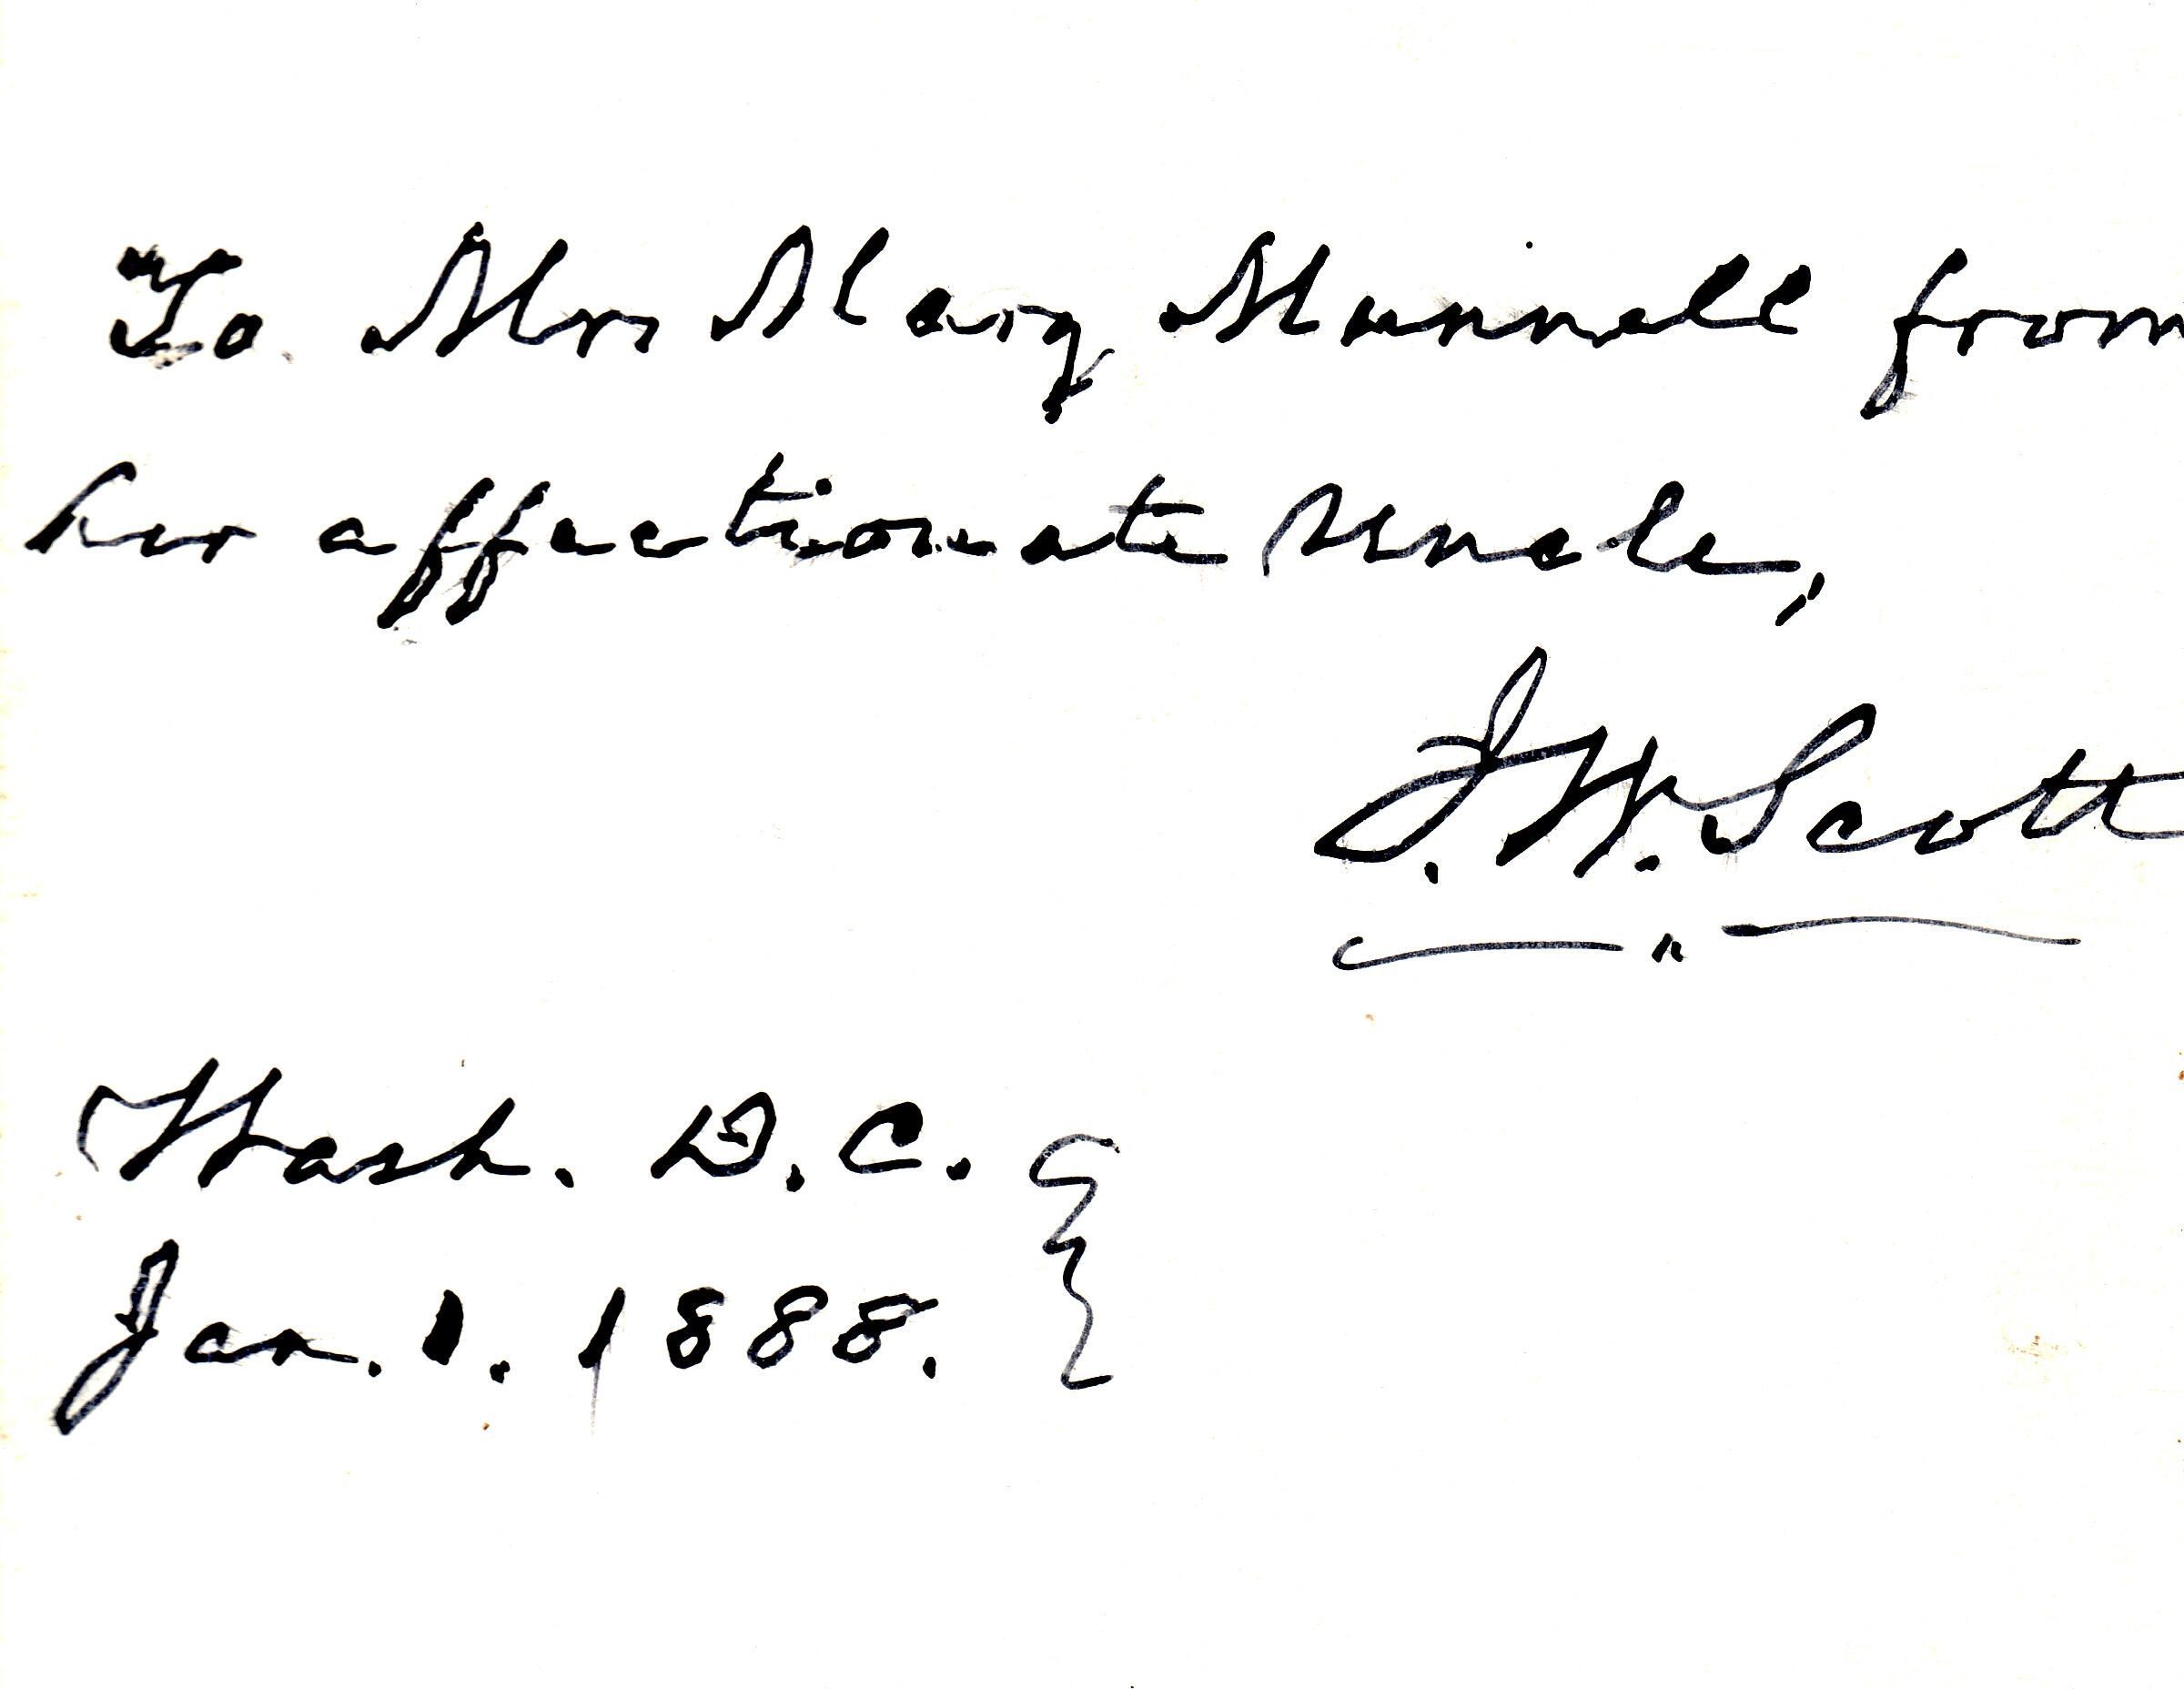 To Mrs Mary Munnell from
her affectionate Uncle,
J. W. Scott
Wash. D. C.
Jan. 1. 1888.